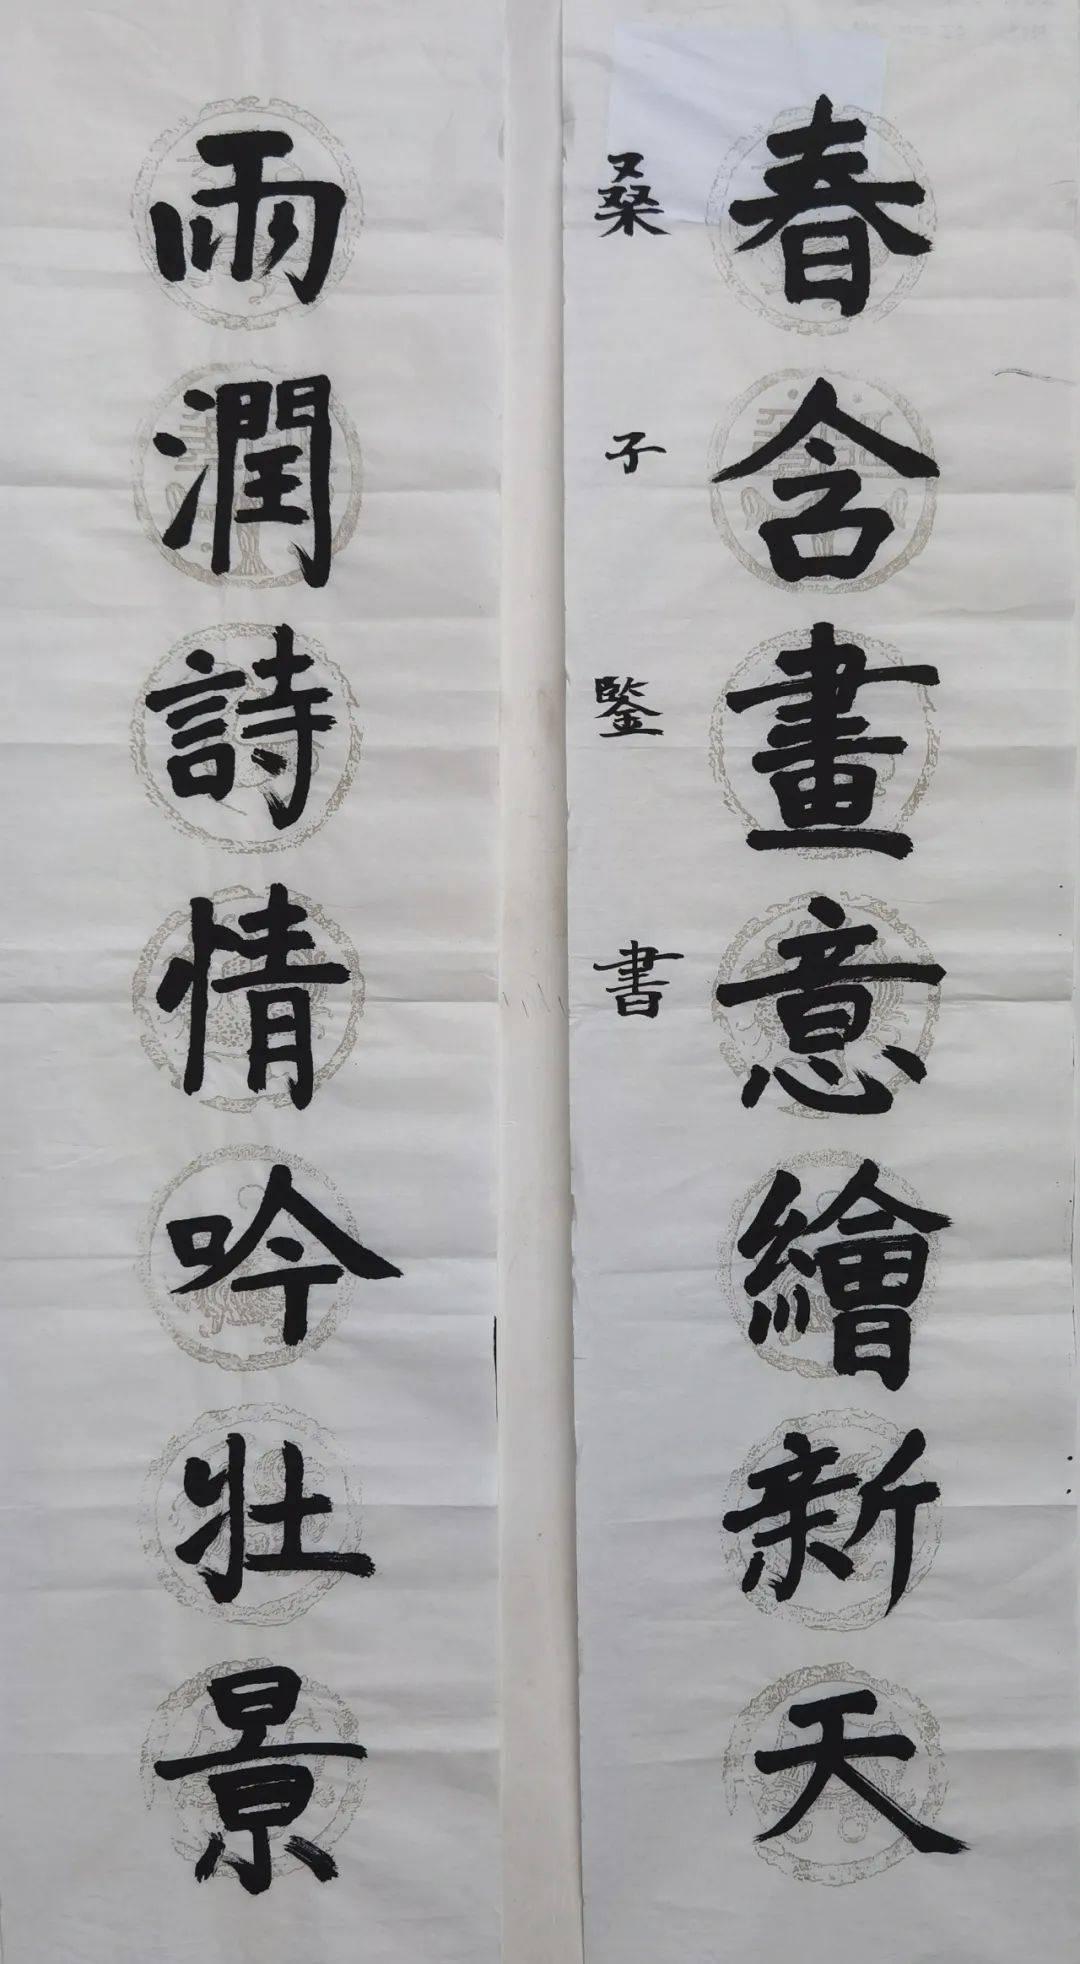 春含畫意繪新天
桑子鑒書
雨潤詩情吟壯景